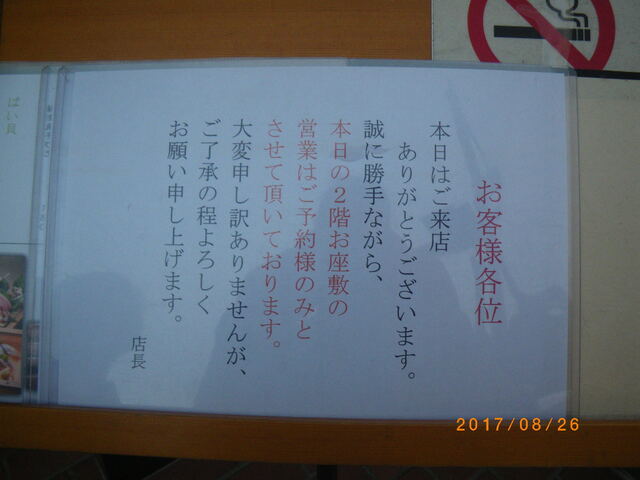 お客様各位
本日はご来店
ありがとうございます。
誠に勝手ながら、
本日の２階お座敷の
営業はご予約様のみと
させて頂いております。
大変申し訳ありませんが、
ご了承の程よろしく
お願い申し上げます。
店長
ばい貝
2017/08/26